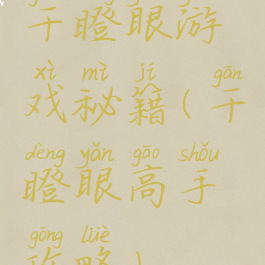 干瞪眼游
xì mì jí gān
戏秘籍(干
dèng yǎn gāo shǒu
瞪眼高手
gōng lüè
攻略)